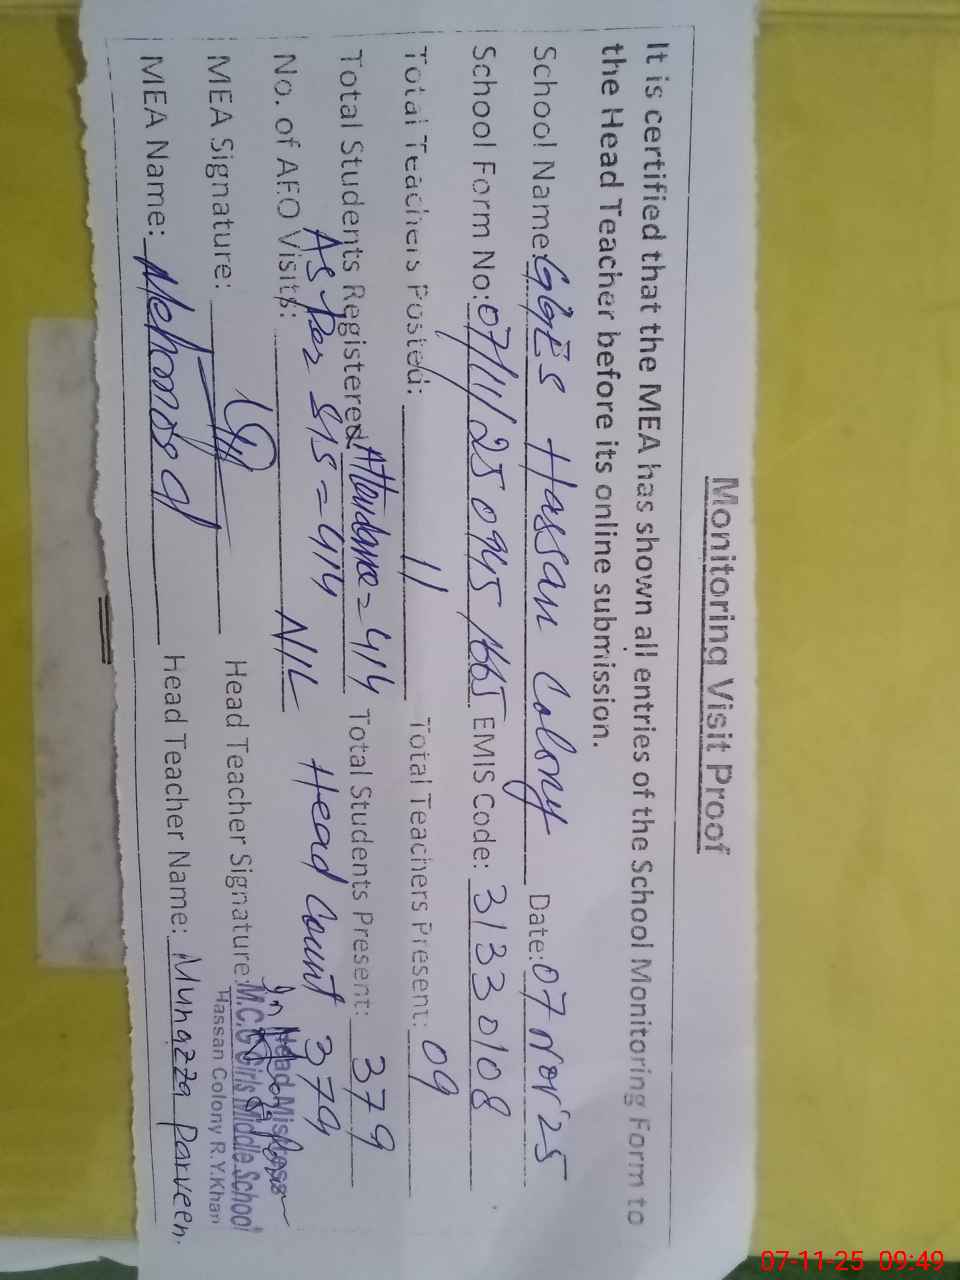 Monitoring Visit Proof
It is certified that the MEA has shown all entries of the School Monitoring Form to
the Head Teacher before its online submission.
School Name: GGES Hassan Colony Date: 07 Nov'25
School Form No: 07/11/25 0945/1665 EMIS Code: 31330108
Total Teachers Posted: 11 Total Teachers Present: 09
Total Students Registered: Attendance = 414 Total Students Present: 379
As per SIS = 414 Head Count 379
No. of AEO Visits: NIL
MEA Signature: Head Teacher Signature:
Head Mistress
M.C.G Girls Middle School
Hassan Colony R.Y.Khan
MEA Name: Head Teacher Name: Munazza Parveen.
07-11-25 09:49